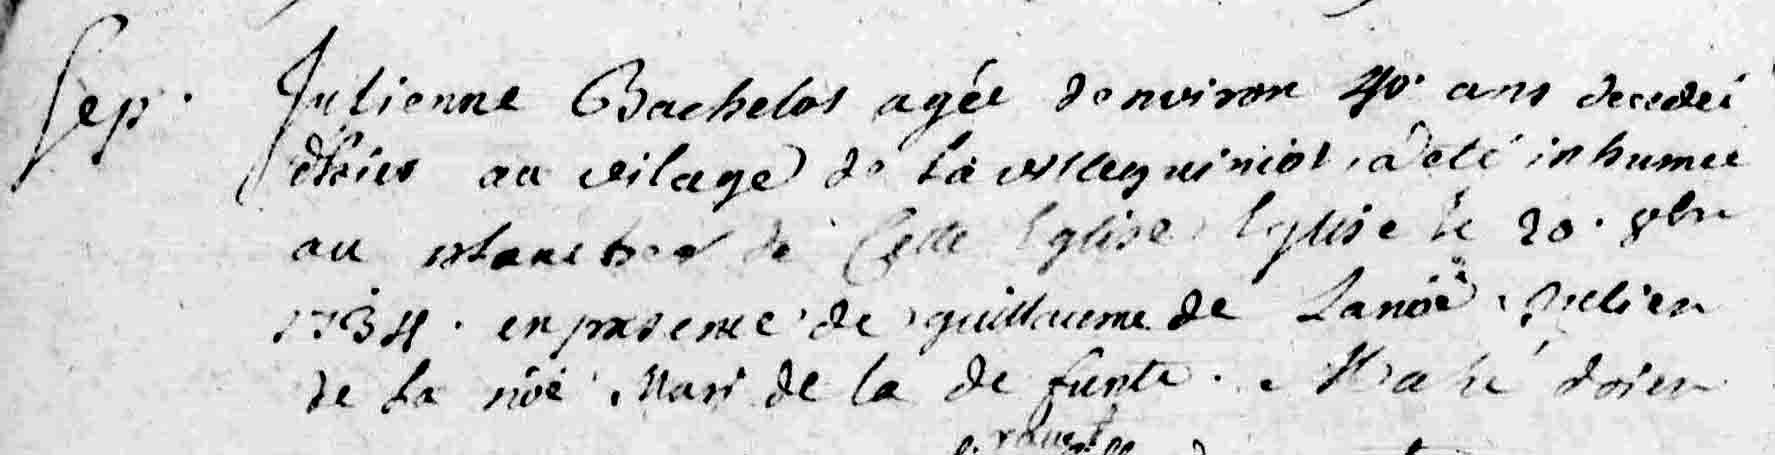 Sep. Julienne Bachelot agée denviron 40. ans decedeé
dhier au vilage de la villequiniot, a eté inhumee
au de Cette Eglise Eglise le 20. 8bre
1734. en presence de guillaume de Lanoë, Julien
de La nöé Mari de la de funte. Mahé doien